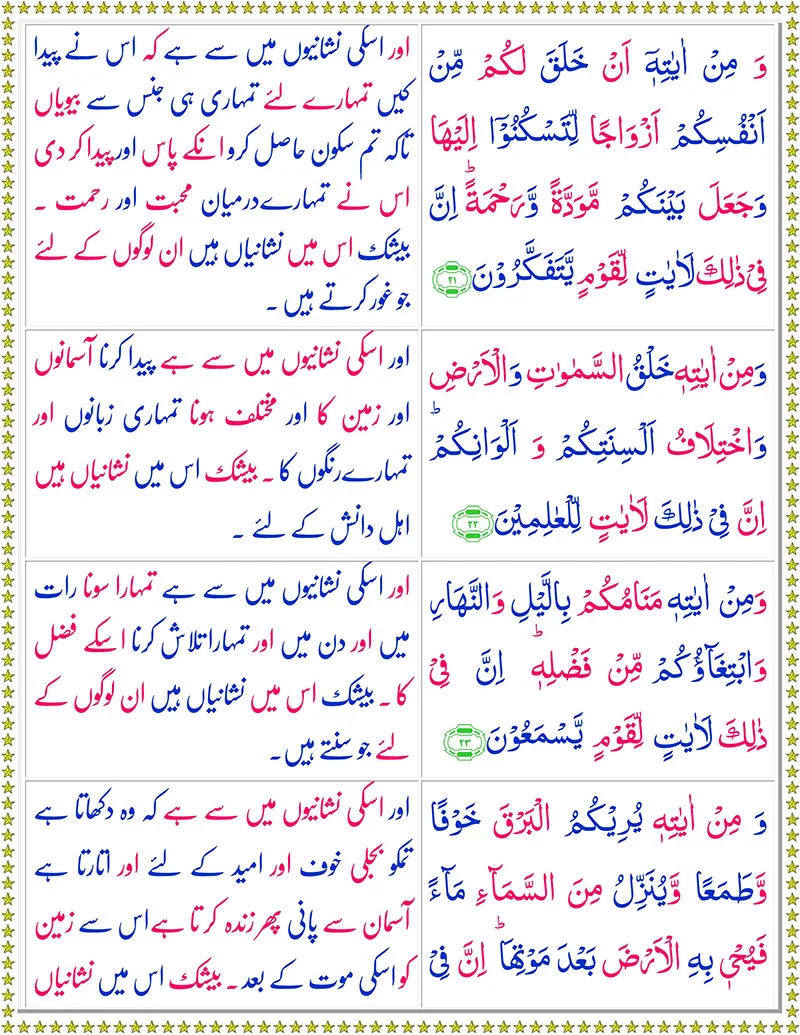 وَ مِنْ اٰيٰتِهٖۤ اَنْ خَلَقَ لَكُمْ مِّنْ
اَنْفُسِكُمْ اَزْوَاجًا لِّتَسْكُنُوْۤا اِلَيْهَا
وَجَعَلَ بَيْنَكُمْ مَّوَدَّةً وَّرَحْمَةً ؕ اِنَّ
فِىْ ذٰلِكَ لَاٰيٰتٍ لِّقَوْمٍ يَّتَفَكَّرُوْنَ ۲۱
اور اسکی نشانیوں میں سے ہے کہ اس نے پیدا
کیں تمہارے لئے تمہاری ہی جنس سے بیویاں
تاکہ تم سکون حاصل کرو انکے پاس اور پیدا کر دی
اس نے تمہارے درمیان محبت اور رحمت ۔
بیشک اس میں نشانیاں ہیں ان لوگوں کے لئے
جو غور کرتے ہیں ۔
وَمِنْ اٰيٰتِهٖ خَلْقُ السَّمٰوٰتِ وَالْاَرْضِ
وَاخْتِلَافُ اَلْسِنَتِكُمْ وَ اَلْوَانِكُمْ ؕ
اِنَّ فِىْ ذٰلِكَ لَاٰيٰتٍ لِّلْعٰلِمِيْنَ ۲۲
اور اسکی نشانیوں میں سے ہے پیدا کرنا آسمانوں
اور زمین کا اور مختلف ہونا تمہاری زبانوں اور
تمہارے رنگوں کا ۔ بیشک اس میں نشانیاں ہیں
اہل دانش کے لئے ۔
وَمِنْ اٰيٰتِهٖ مَنَامُكُمْ بِالَّيْلِ وَالنَّهَارِ
وَابْتِغَآؤُكُمْ مِّنْ فَضْلِهٖ ؕ اِنَّ فِىْ
ذٰلِكَ لَاٰيٰتٍ لِّقَوْمٍ يَّسْمَعُوْنَ ۲۳
اور اسکی نشانیوں میں سے ہے تمہارا سونا رات
میں اور دن میں اور تمہارا تلاش کرنا اسکے فضل
کا ۔ بیشک اس میں نشانیاں ہیں ان لوگوں کے
لئے جو سنتے ہیں۔
وَ مِنْ اٰيٰتِهٖ يُرِيْكُمُ الْبَرْقَ خَوْفًا
وَّطَمَعًا وَّيُنَزِّلُ مِنَ السَّمَآءِ مَآءً
فَيُحْىٖ بِهِ الْاَرْضَ بَعْدَ مَوْتِهَا ؕ اِنَّ فِىْ
اور اسکی نشانیوں میں سے ہے کہ وہ دکھاتا ہے
تمکو بجلی خوف اور امید کے لئے اور اتارتا ہے
آسمان سے پانی پھر زندہ کرتا ہے اس سے زمین
کو اسکی موت کے بعد ۔ بیشک اس میں نشانیاں